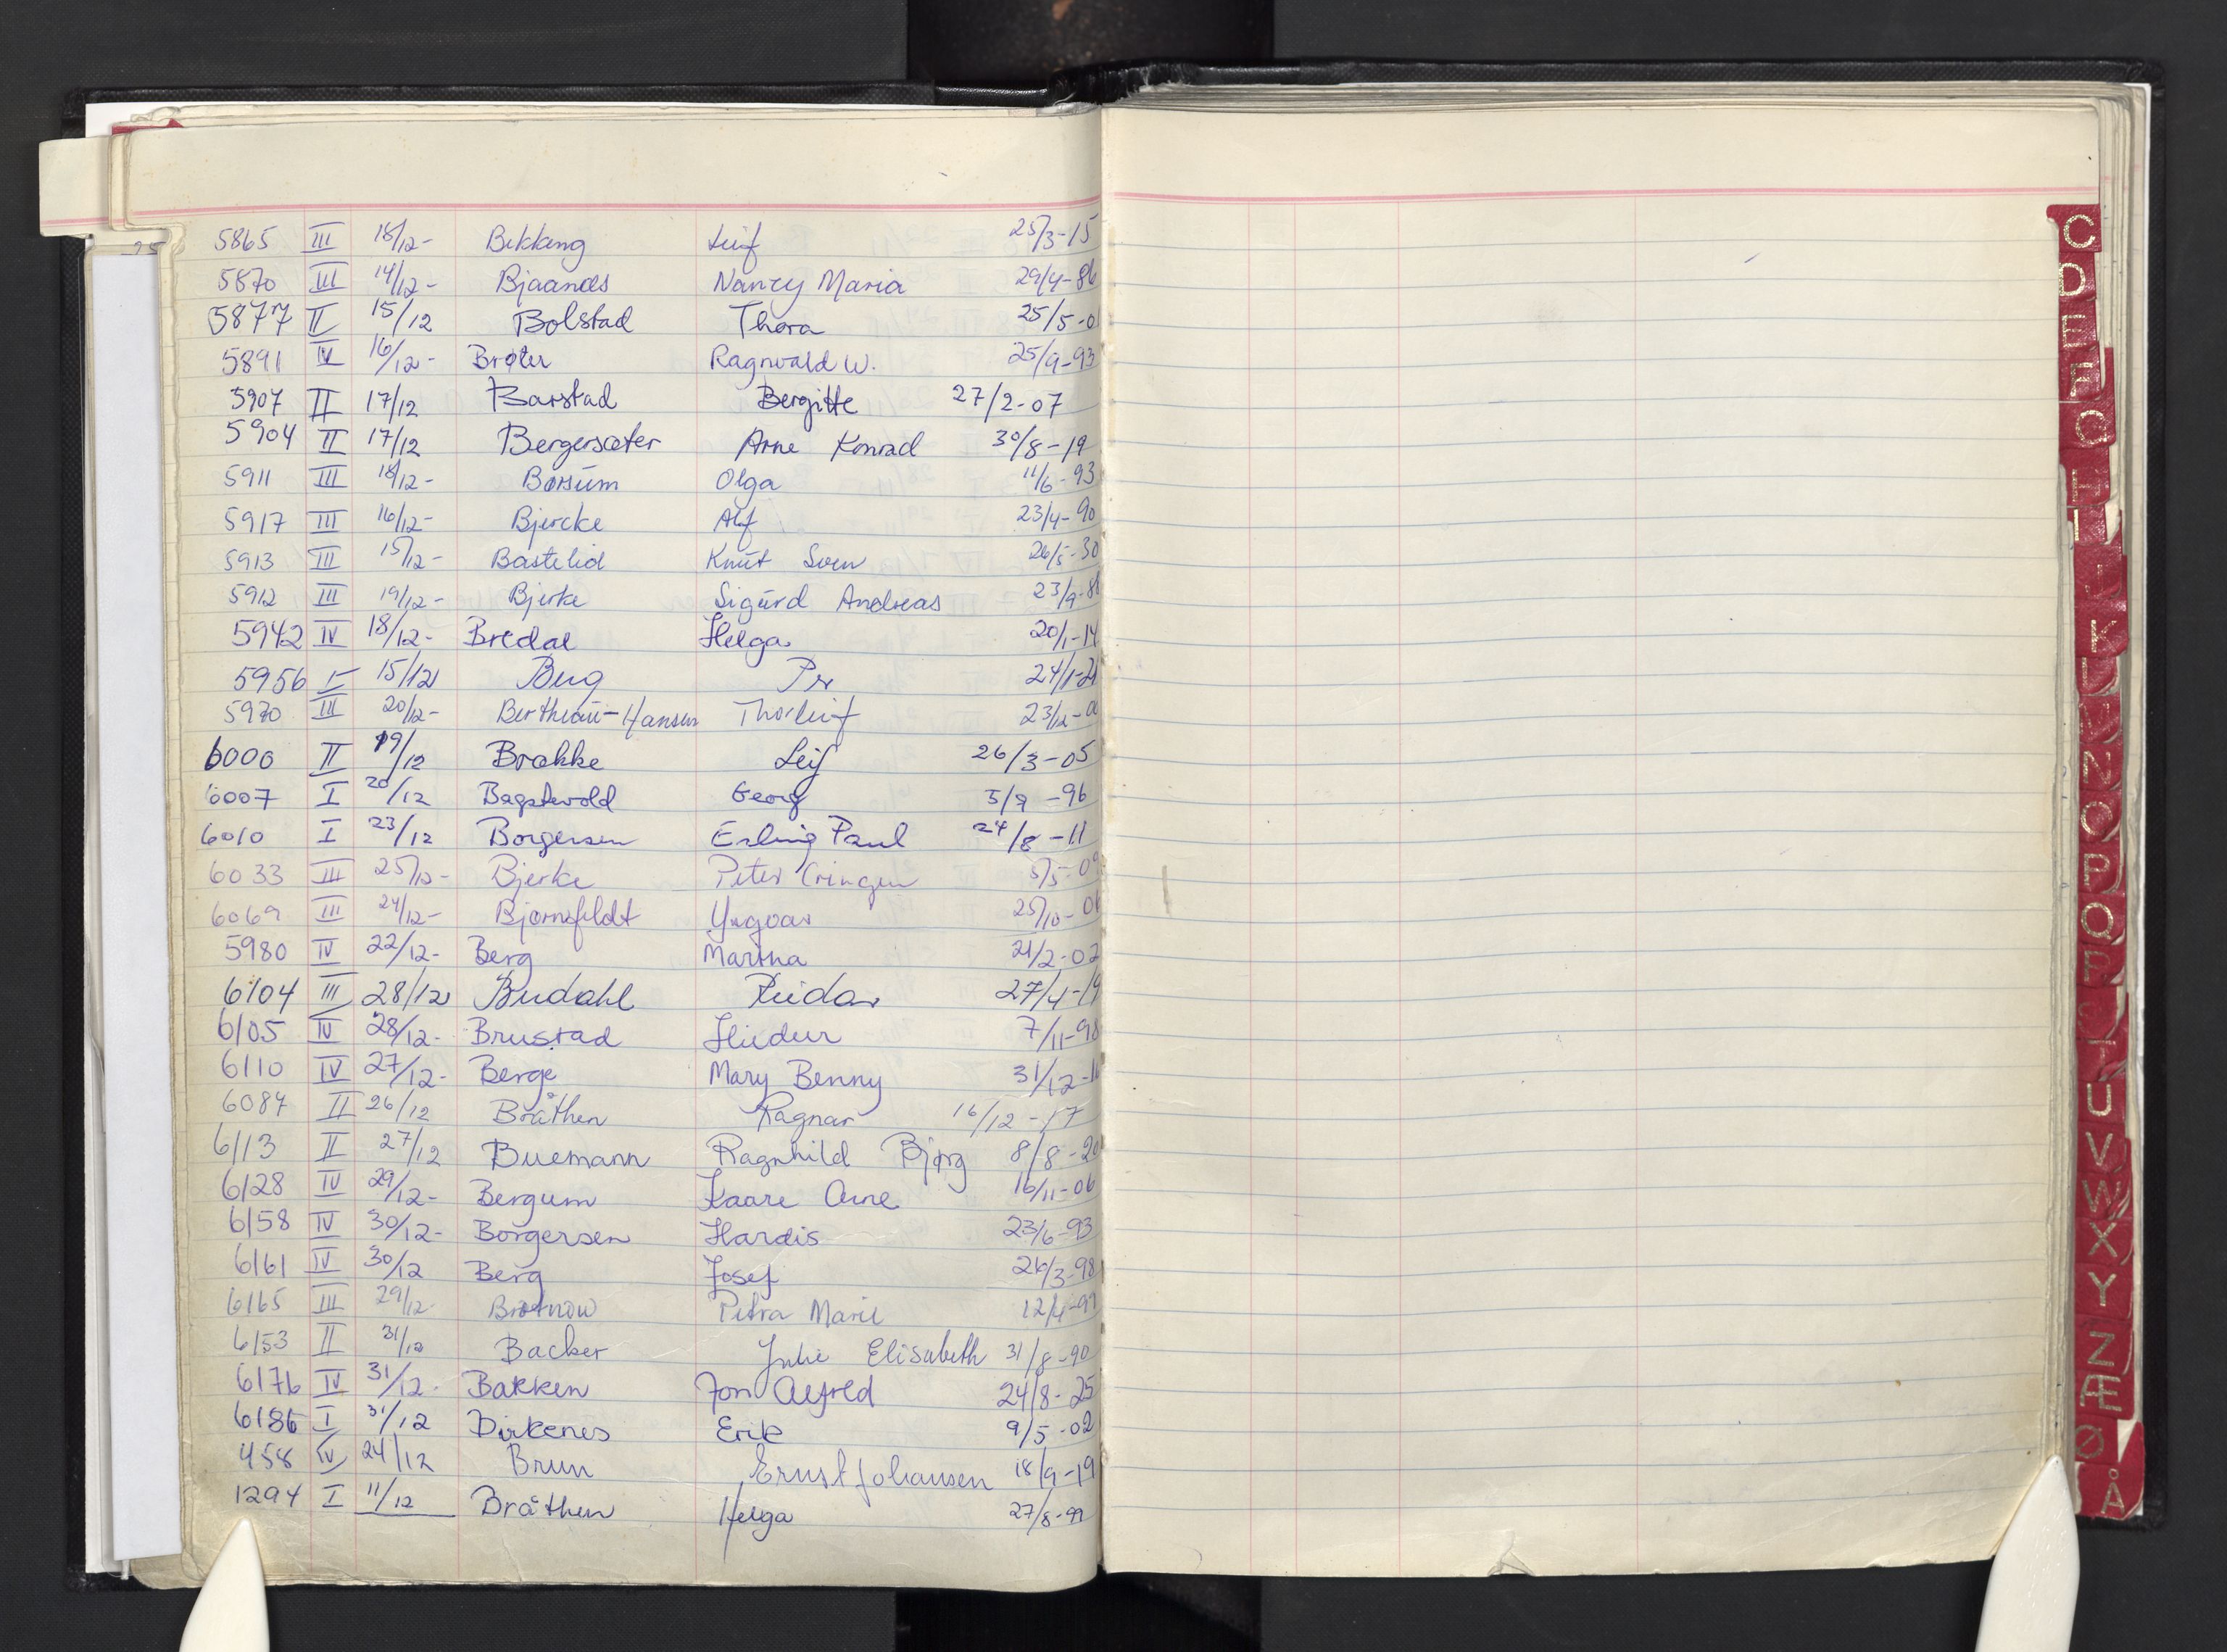 25
5865 III 18/12- Bekkeng Leif 25/3-15
5870 III 14/12- Bjaanæs Nancy Maria 29/4-86
5877 II 15/12 Bolstad Thora 25/5-0
5891 IV 16/12- Brøter Ragnvald W. 25/9-93
5907 II 17/12 Barstad Bergitte 27/2-07
5904 II 17/12 Bergersæter Arne Konrad 30/8-19
5911 III 18/12- Børsum Olga 11/6-93
5917 III 16/12- Bjercke Alf 23/4-90
5913 III 15/12- Bastelid Knut Sven 26/5-30
5912 III 19/12- Bjerke Sigurd Andreas 23/9-88
5942 IV 18/12- Bredal Helga 20/1-14
5956 I 15/12 Berg Per 24/1-21
5970 III 20/12- Bertheau-Hansen Thorleif 23/12-0
6000 II 19/12 Brække Leif 26/3-05
6007 I 20/12 Bagstevold Georg 5/7-96
6010 I 23/12 Borgersen Erling Paul 24/8-11
6033 III 25/12- Bjerke Peter Cringen 5/5-09
6069 III 24/12- Bjørnsfeldt Yngvar 25/10-01
5980 IV 22/12- Berg Martha 21/2-02
6104 III 28/12 Budahl Reidar 27/4-19
6105 IV 28/12- Brustad Heidur 7/11-98
6110 IV 27/12- Berge Mary Benny 31/12-1
6087 II 26/12 Bråthen Ragnar 16/12-17
6113 II 27/12 Buemann Ragnhild Bjørg 8/8-20
6128 IV 29/12- Bergum Kaare Arne 16/11-06
6158 IV 30/12- Borgersen Hardis 23/6-93
6161 IV 30/12 Berg Josef 26/3-98
6165 III 29/12 Brotnow Petra Marie 12/4-97
6153 II 31/12 Backer Julie Elisabeth 31/8-90
6176 IV 31/12- Bakken Jon Alfred 24/8-25
6186 I 31/12 Birkenes Erik 9/5-02
458 IV 24/12 Brun Ernst Johansen 18/9-19
1294 I 11/12 Bråthen Helga 27/8-99
C
D
E
F
G
H
I
J
K
L
M
N
O
P
Q
R
S
T
U
V
W
X
Y
Z
Æ
Ø
Å